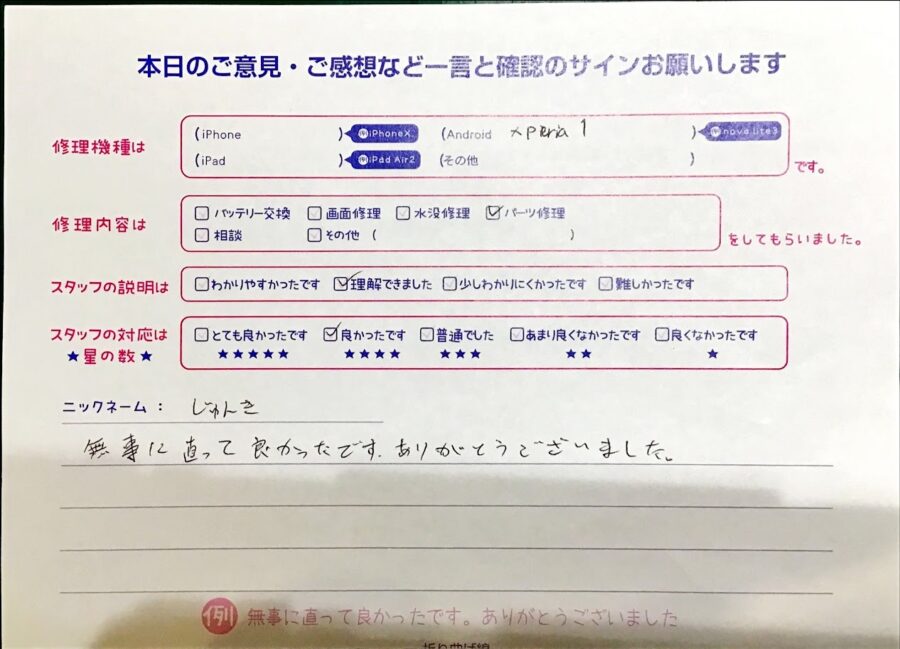 本日のご意見・ご感想など一言と確認のサインお願いします
修理機種は
(iPhone ) 例iPhoneX (Android xperia 1 ) 例nova lite3
(iPad ) 例iPad Air2 (その他 )
です。
修理内容は
バッテリー交換 画面修理 水没修理 パーツ修理
相談 その他 ( )
をしてもらいました。
スタッフの説明は
わかりやすかったです 理解できました 少しわかりにくかったです 難しかったです
スタッフの対応は
★星の数★
とても良かったです 良かったです 普通でした あまり良くなかったです 良くなかったです
★★★★★ ★★★★ ★★★ ★★ ★
ニックネーム: じゅんき
無事に直って良かったです.ありがとうございました。
例 無事に直って良かったです。ありがとうございました
折り曲げ線